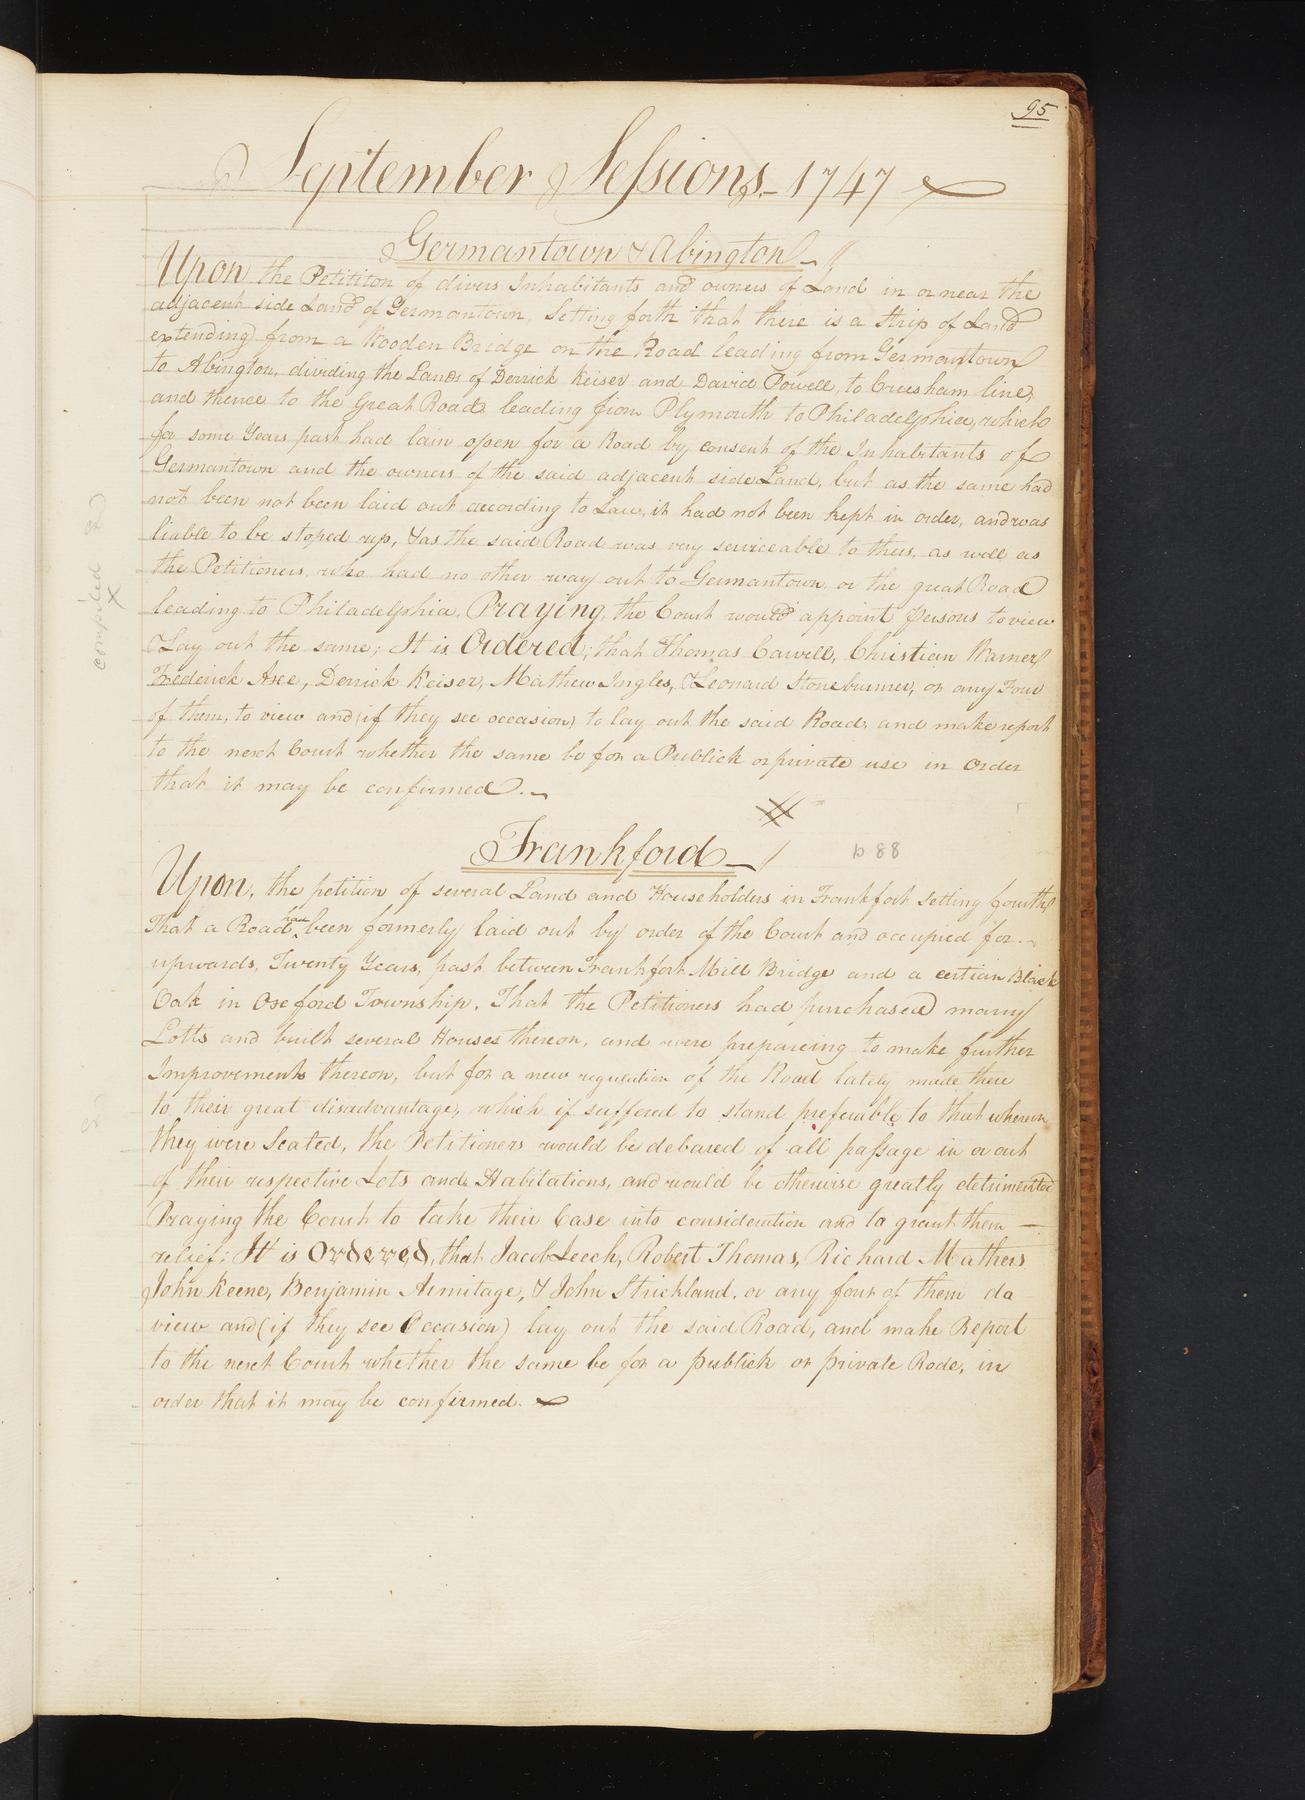 95
September Sessions 1747
Germantown & Abington
Upon the Petititon of divers Inhabitants and owners of Land in or near the
adjacent side Land of Germantown, Setting forth that there is a strip of Land
extending from a Wooden Bridge on the Road leading from Germantown
to Abington, dividing the Lands of Derrick Keiser and David Powell, to Creesham line,
and thence to the Great Road leading from Plymouth to Philadelphia, which
for some Years past had lain open for a Road by consent of the Inhabitants of
Germantown and the owners of the said adjacent side Land, but as the same had
not been not been laid out according to Law, it had not been kept in order, and was
liable to be stoped up, & as the said Road was very serviceable to them as well as
the Petitioners who had no other way out to Germantown or the great Road
leading to Philadelphia. Praying, the Court would appoint persons to view
& Lay out the same; It is Ordered; that Thomas Cawell, Christian Warner
Frederick Axe, Derrick Keiser, Mathew Ingles, & Leonard Stoneburner, or any Four
of them, to view and (if they see occasion) to lay out the said Road, and make report
to the next Court whether the same be for a Publick or private use in Order
that it may be confirmed.
Frankford
b 88
Upon, the petition of several Land and House holders in Frankfort Setting fourth
That a Road have been formerly laid out by order of the Court and occupied for
upwards, Twenty Years, past between Frankfort Mill Bridge and a certian Black
Oak in Oxeford Township. That the Petitioners had purchased many
Lotts and built several Houses thereon, and were prepareing to make further
Improvements thereon, but for a new regulation of the Road lately made there
to their great disadvantage, which if suffered to stand preferable to that wherein
they were Seated, the Petitioners would be debared of all passage in or out
of their respective Lots and Habitations, and would be otherwise greatly detrimented
Praying the Court to take their Case into consideration and to grant them
relief; It is Ordered, that Jacob Leech, Robert Thomas, Richard Mathers
John Keene, Benjamin Armitage, & John Strickland, or any four of them do
view and (if they see Occasion) lay out the said Road, and make Report
to the next Court whether the same be for a publick or private Rode, in
order that it may be confirmed.